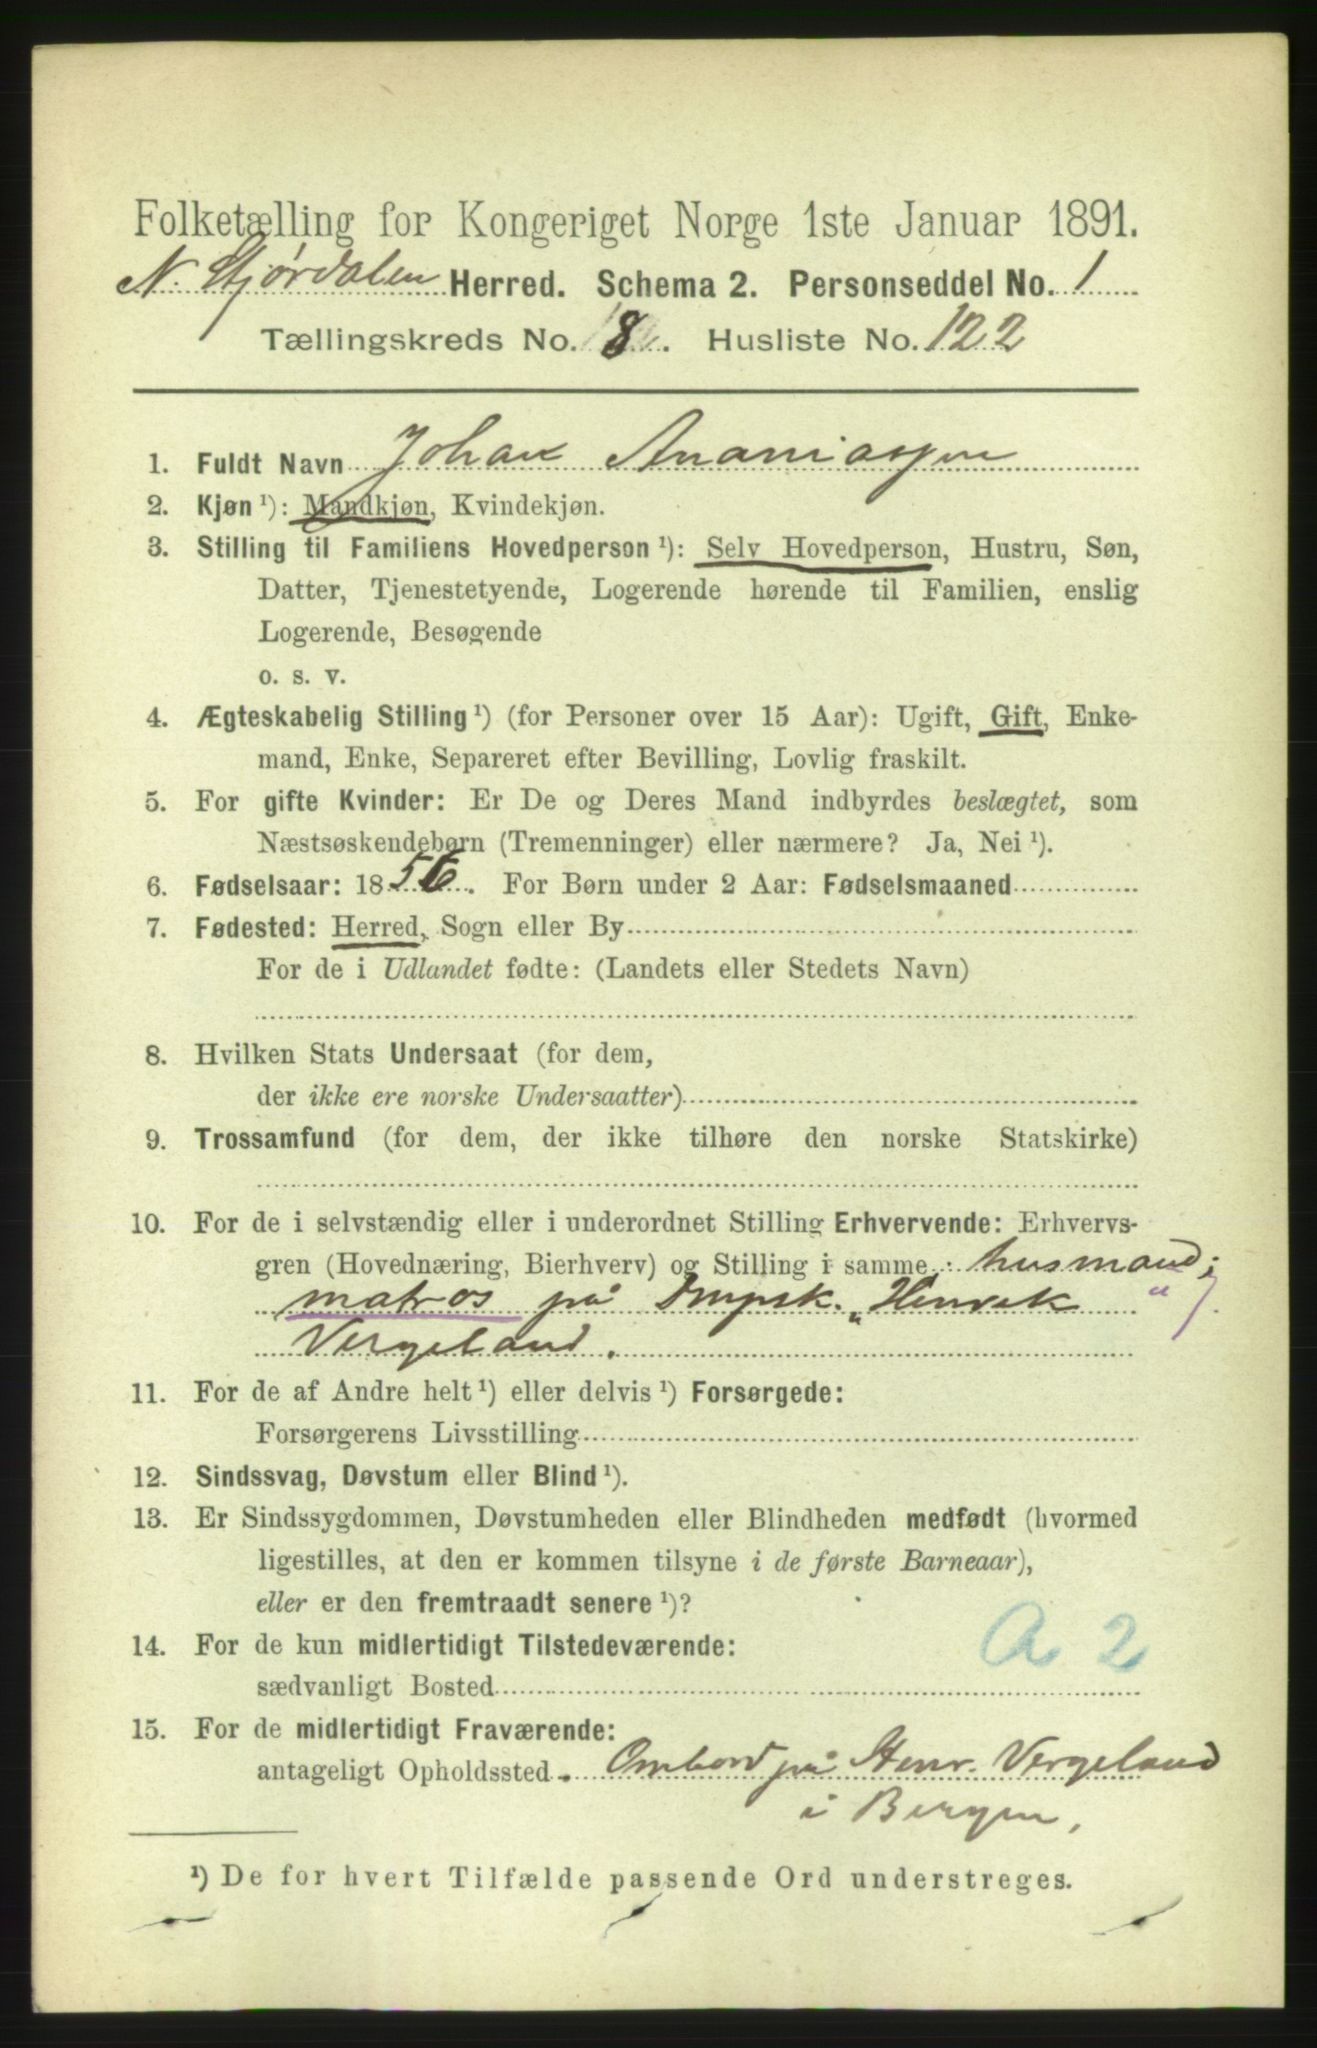 Folketælling for Kongeriget Norge 1ste Januar 1891.
N. Stjørdalen Herred. Schema 2. Personseddel No. 1
Tællingskreds No. 8. Husliste No. 122
1. Fuldt Navn Johan Ananiassen
2. Kjøn ¹): Mandkjøn, Kvindekjøn.
3. Stilling til Familiens Hovedperson ¹): Selv Hovedperson, Hustru, Søn,
Datter, Tjenestetyende, Logerende hørende til Familien, enslig
Logerende, Besøgende
o. s. v.
4. Ægteskabelig Stilling ¹) (for Personer over 15 Aar): Ugift, Gift, Enke-
mand, Enke, Separeret efter Bevilling, Lovlig fraskilt.
5. For gifte Kvinder: Er De og Deres Mand indbyrdes beslægtet, som
Næstsøskendebørn (Tremenninger) eller nærmere? Ja, Nei ¹).
6. Fødselsaar: 1856. For Børn under 2 Aar: Fødselsmaaned
7. Fødested: Herred, Sogn eller By
For de i Udlandet fødte: (Landets eller Stedets Navn)
8. Hvilken Stats Undersaat (for dem,
der ikke ere norske Undersaatter)
9. Trossamfund (for dem, der ikke tilhøre den norske Statskirke)
10. For de i selvstændig eller i underordnet Stilling Erhvervende: Erhvervs-
gren (Hovednæring, Bierhverv) og Stilling i samme: husmand;
matros på Dmpsk. „Henrek "
Vergeland.
11. For de af Andre helt ¹) eller delvis ¹) Forsørgede:
Forsørgerens Livsstilling
12. Sindssvag, Døvstum eller Blind ¹).
13. Er Sindssygdommen, Døvstumheden eller Blindheden medfødt (hvormed
ligestilles, at den er kommen tilsyne i de første Barneaar),
eller er den fremtraadt senere ¹)?
14. For de kun midlertidigt Tilstedeværende:
sædvanligt Bosted
A 2
15. For de midlertidigt Fraværende:
antageligt Opholdssted. Ombord på Henr. Vergeland
i Bergen,
¹) De for hvert Tilfælde passende Ord understreges.